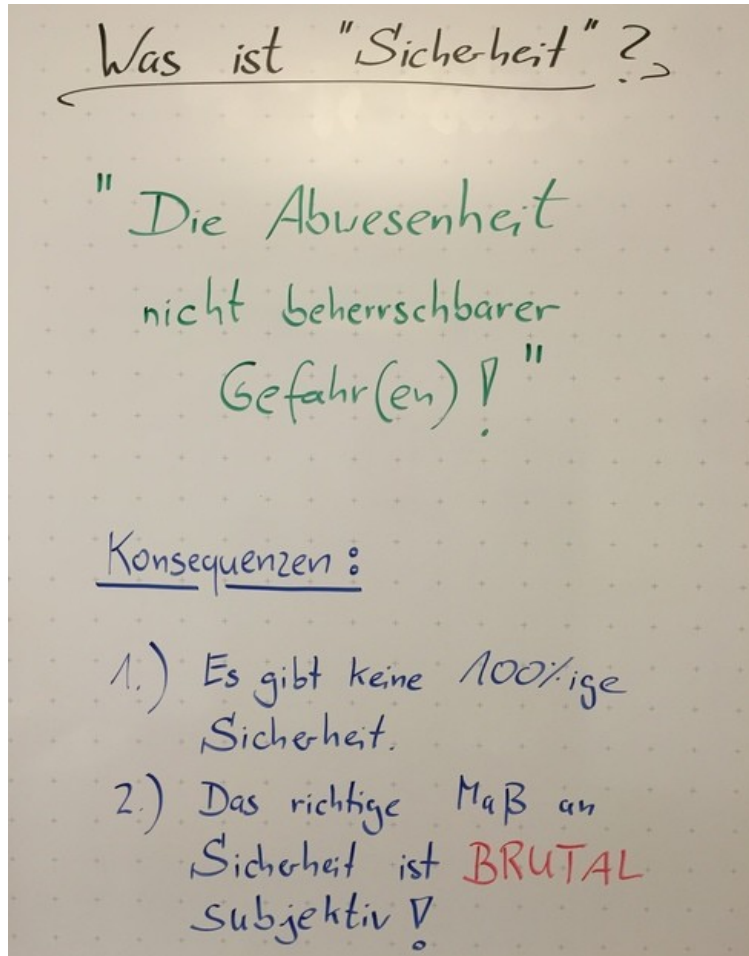 Was ist "Sicherheit"?
"Die Abwesenheit
nicht beherrschbarer
Gefahr(en)!"
Konsequenzen:
1.) Es gibt keine 100%ige
Sicherheit.
2.) Das richtige Maß an
Sicherheit ist BRUTAL
subjektiv!